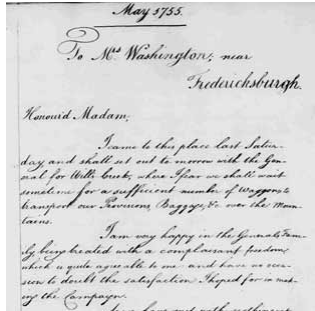 May 1755.
To Mrs Washington; near
Fredericksburgh.
Honour'd Madam;
I came to this place last Satur-
day and shall set out to morrow with the Gen-
eral for Wills Creek; where I fear we shall wait
sometime for a sufficient number of Waggons to
transport our Provisions, Baggage, &c. over the Moun-
tains.
I am very happy in the General's Fam-
ily, being treated with a complaisant freedom,
which is quite agreeable to me and have no rea-
son to doubt the satisfaction I hoped for in mak-
ing the Campaign.